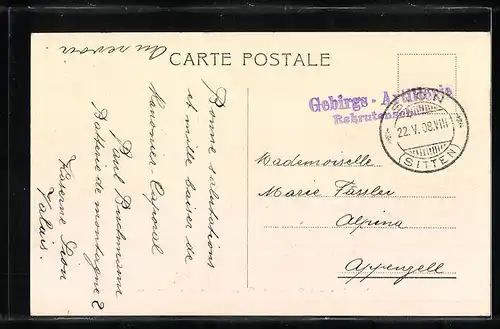 Au revoir.
CARTE POSTALE
Gebirgs-Artillerie
Rekrutenschule
SION
22.V.08.VIII
(SITTEN)
Mademoiselle
Marie Fässler
Alpina
Appenzell
Bonne salutations
et mille baiser de
Kanonier-Caporal
Paul Buchmann
Batterie de montagne 2
Kaserne Sion
Valais.